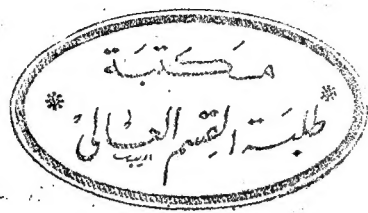 مكتبة
طلبة القسم العالي